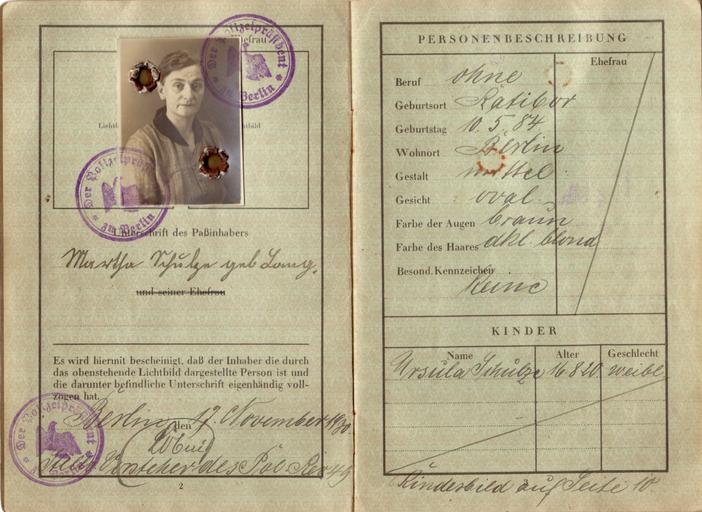 Ehefrau
Der Polizeipräsident
in Berlin
Der Polizeipräsident
in Berlin
Unterschrift des Paßinhabers
Martha Schulze geb Lang.
und seiner Ehefrau
Es wird hiermit bescheinigt, daß der Inhaber die durch
das obenstehende Lichtbild dargestellte Person ist und
die darunter befindliche Unterschrift eigenhändig voll-
zogen hat.
Berlin, den 17. November 1930
Der Polizeipräsident
in Berlin
Vorsteher des Pol Rev 49
2
PERSONENBESCHREIBUNG
Ehefrau
Beruf ohne
Geburtsort Ratibor
Geburtstag 10.5.84
Wohnort Berlin
Gestalt mittel
Gesicht oval
Farbe der Augen braun
Farbe des Haares dkl. blond
Besond. Kennzeichen
Keine
KINDER
Name Alter Geschlecht
Ursula Schulze 16 8 20 weibl
Kinderbild auf Seite 10